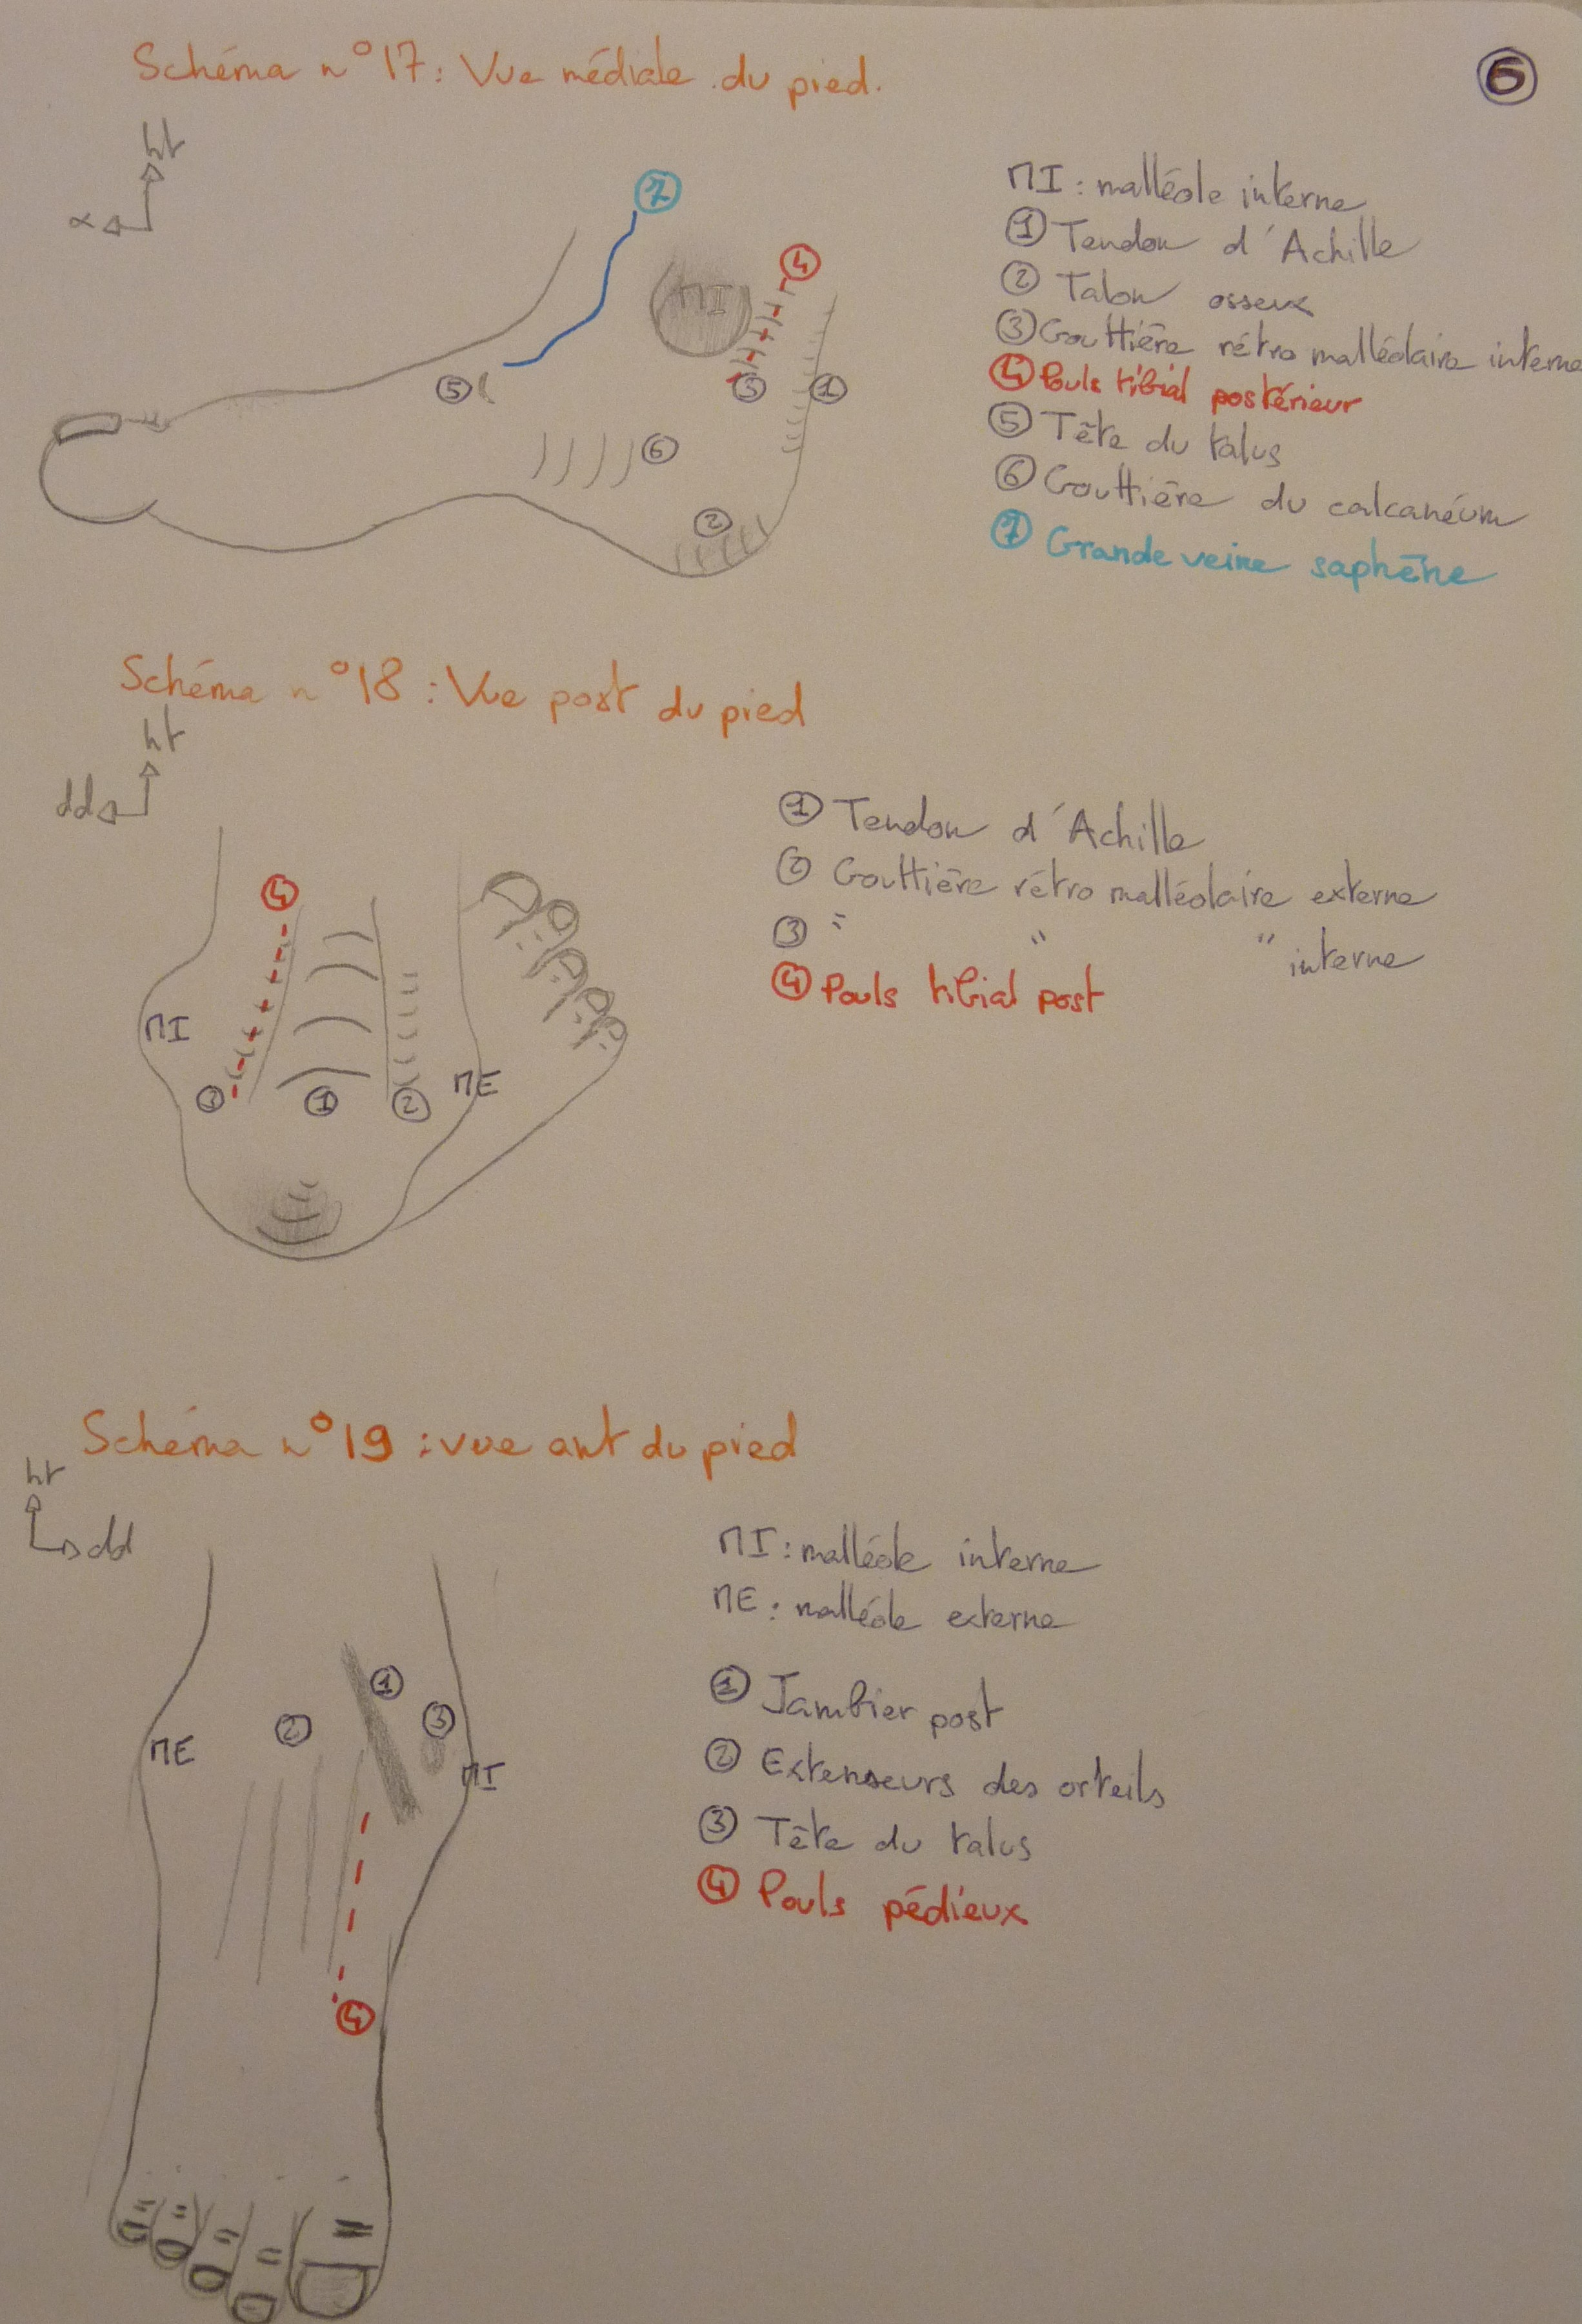 Schéma n°17: Vue médiale du pied.
6
ht
MI : malléole interne
① Tendon d'Achille
② Talon osseux
③ Gouttière rétro malléolaire interne
④ Pouls tibial postérieur
⑤ Tête du talus
⑥ Gouttière du calcanéum
⑦ Grande veine saphène
⑦
④
MI
⑤
③
①
⑥
②
Schéma n°18 : Vue post du pied
ht
dd
① Tendon d'Achille
② Gouttière rétro malléolaire externe
③ " " " interne
④ Pouls tibial post
④
MI
ME
③
①
②
Schéma n°19 : vue ant du pied
ht
dd
MI : malléole interne
ME : malléole externe
① Jambier post
② Extenseurs des orteils
③ Tête du talus
④ Pouls pédieux
①
②
③
ME
MI
④